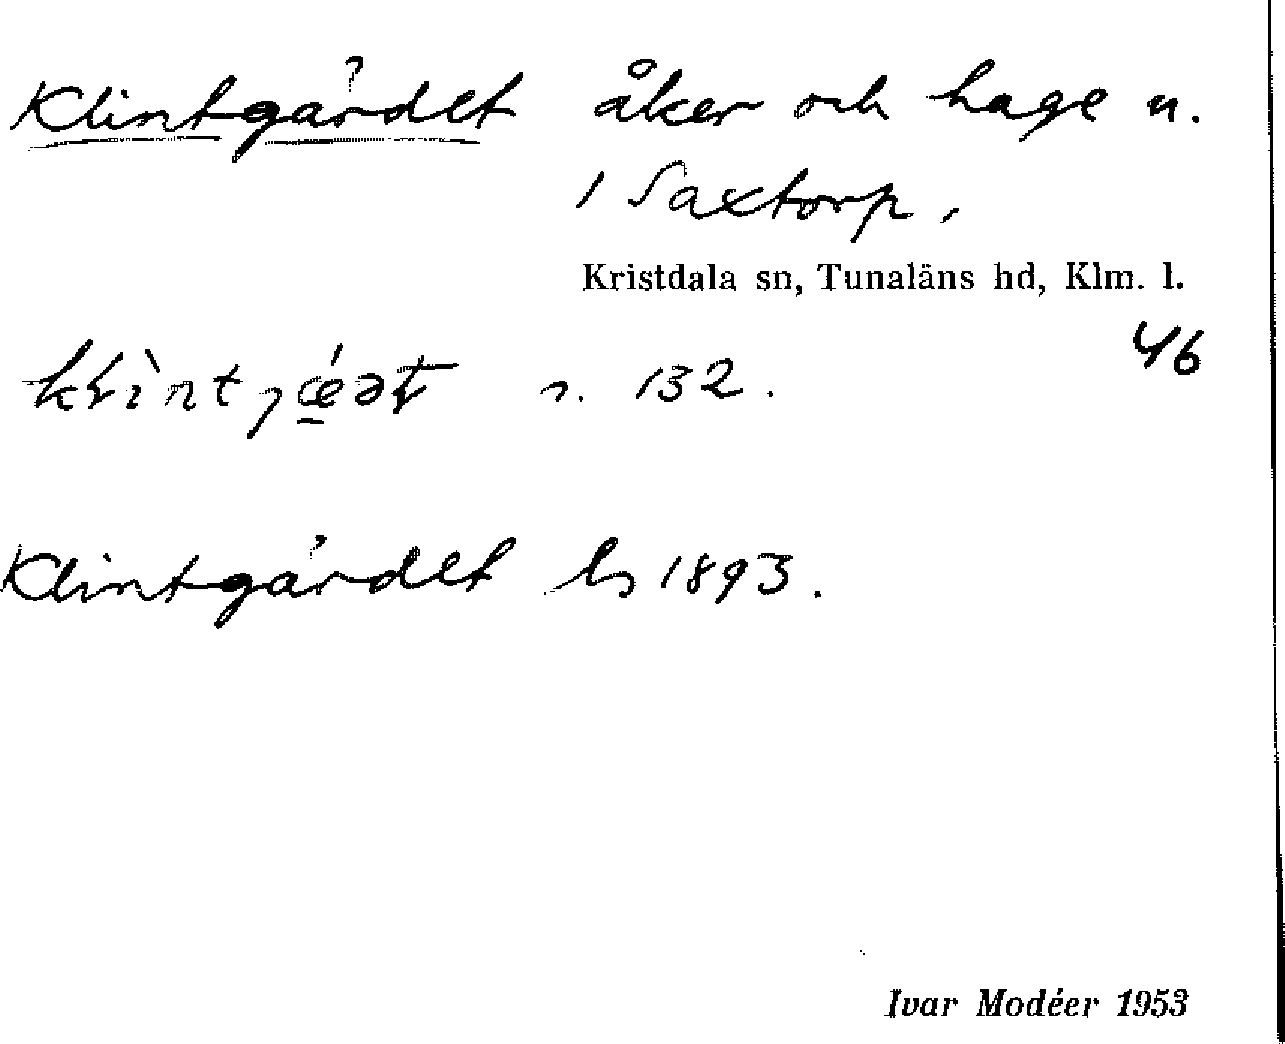 Klintgärdet åker och hage u.
1 Saxtorp,
Kristdala sn, Tunaläns hd, Klm. l.
46
n. 132.
Klintgärdet ls 1893.
Ivar Modéer 1953